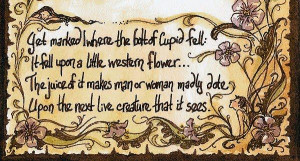 Yet marked I where the bolt of Cupid fell:
It fell upon a little western flower...
The juice of it makes man or woman madly dote
Upon the next live creature that it sees.